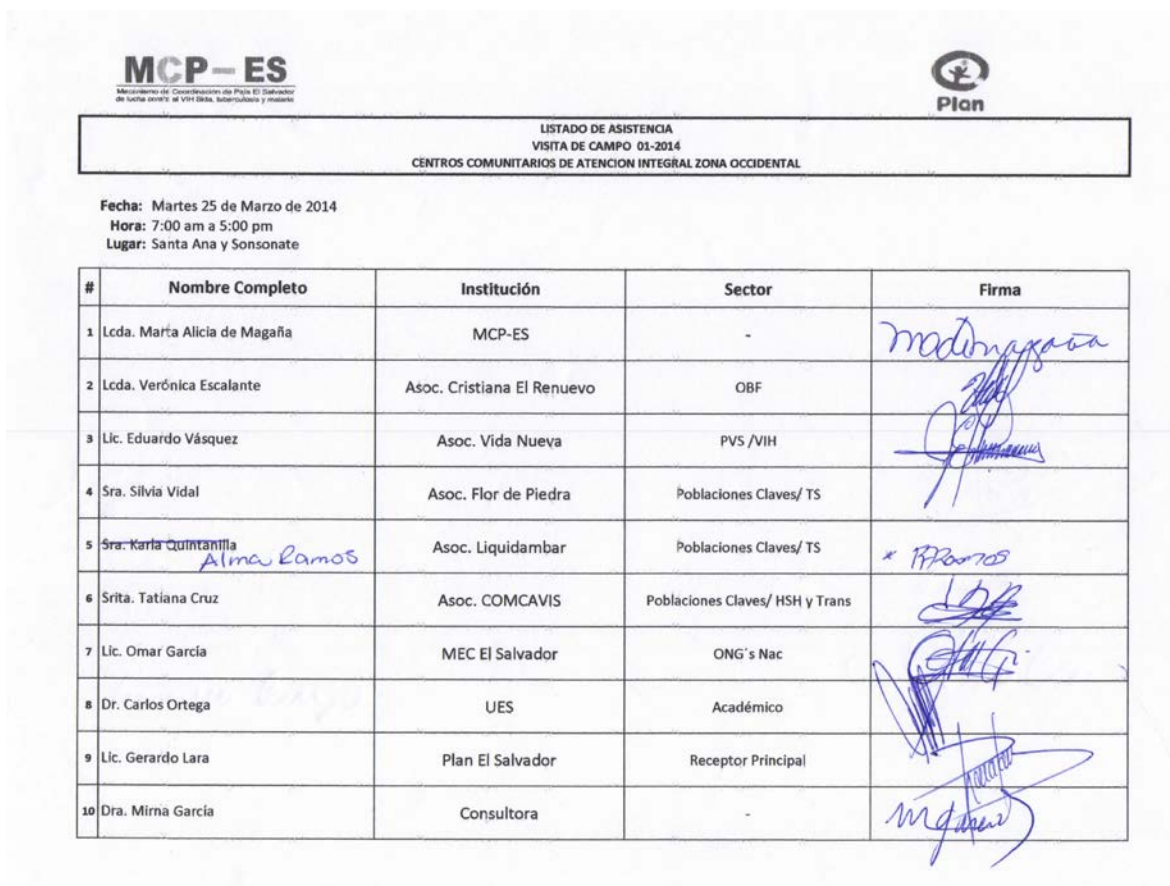 MCP-ES
Mecanismo de Coordinación de País El Salvador
de lucha contra el VIH Sida, tuberculosis y malaria
Plan
LISTADO DE ASISTENCIA
VISITA DE CAMPO 01-2014
CENTROS COMUNITARIOS DE ATENCION INTEGRAL ZONA OCCIDENTAL
Fecha: Martes 25 de Marzo de 2014
Hora: 7:00 am a 5:00 pm
Lugar: Santa Ana y Sonsonate
# Nombre Completo Institución Sector Firma
1 Lcda. Marta Alicia de Magaña MCP-ES -
2 Lcda. Verónica Escalante Asoc. Cristiana El Renuevo OBF
3 Lic. Eduardo Vásquez Asoc. Vida Nueva PVS /VIH
4 Sra. Silvia Vidal Asoc. Flor de Piedra Poblaciones Claves/ TS
5 Sra. Karla Quintanilla Asoc. Liquidambar Poblaciones Claves/ TS
Alma Ramos
6 Srita. Tatiana Cruz Asoc. COMCAVIS Poblaciones Claves/ HSH y Trans
7 Lic. Omar García MEC El Salvador ONG´s Nac
8 Dr. Carlos Ortega UES Académico
9 Lic. Gerardo Lara Plan El Salvador Receptor Principal
10 Dra. Mirna García Consultora -